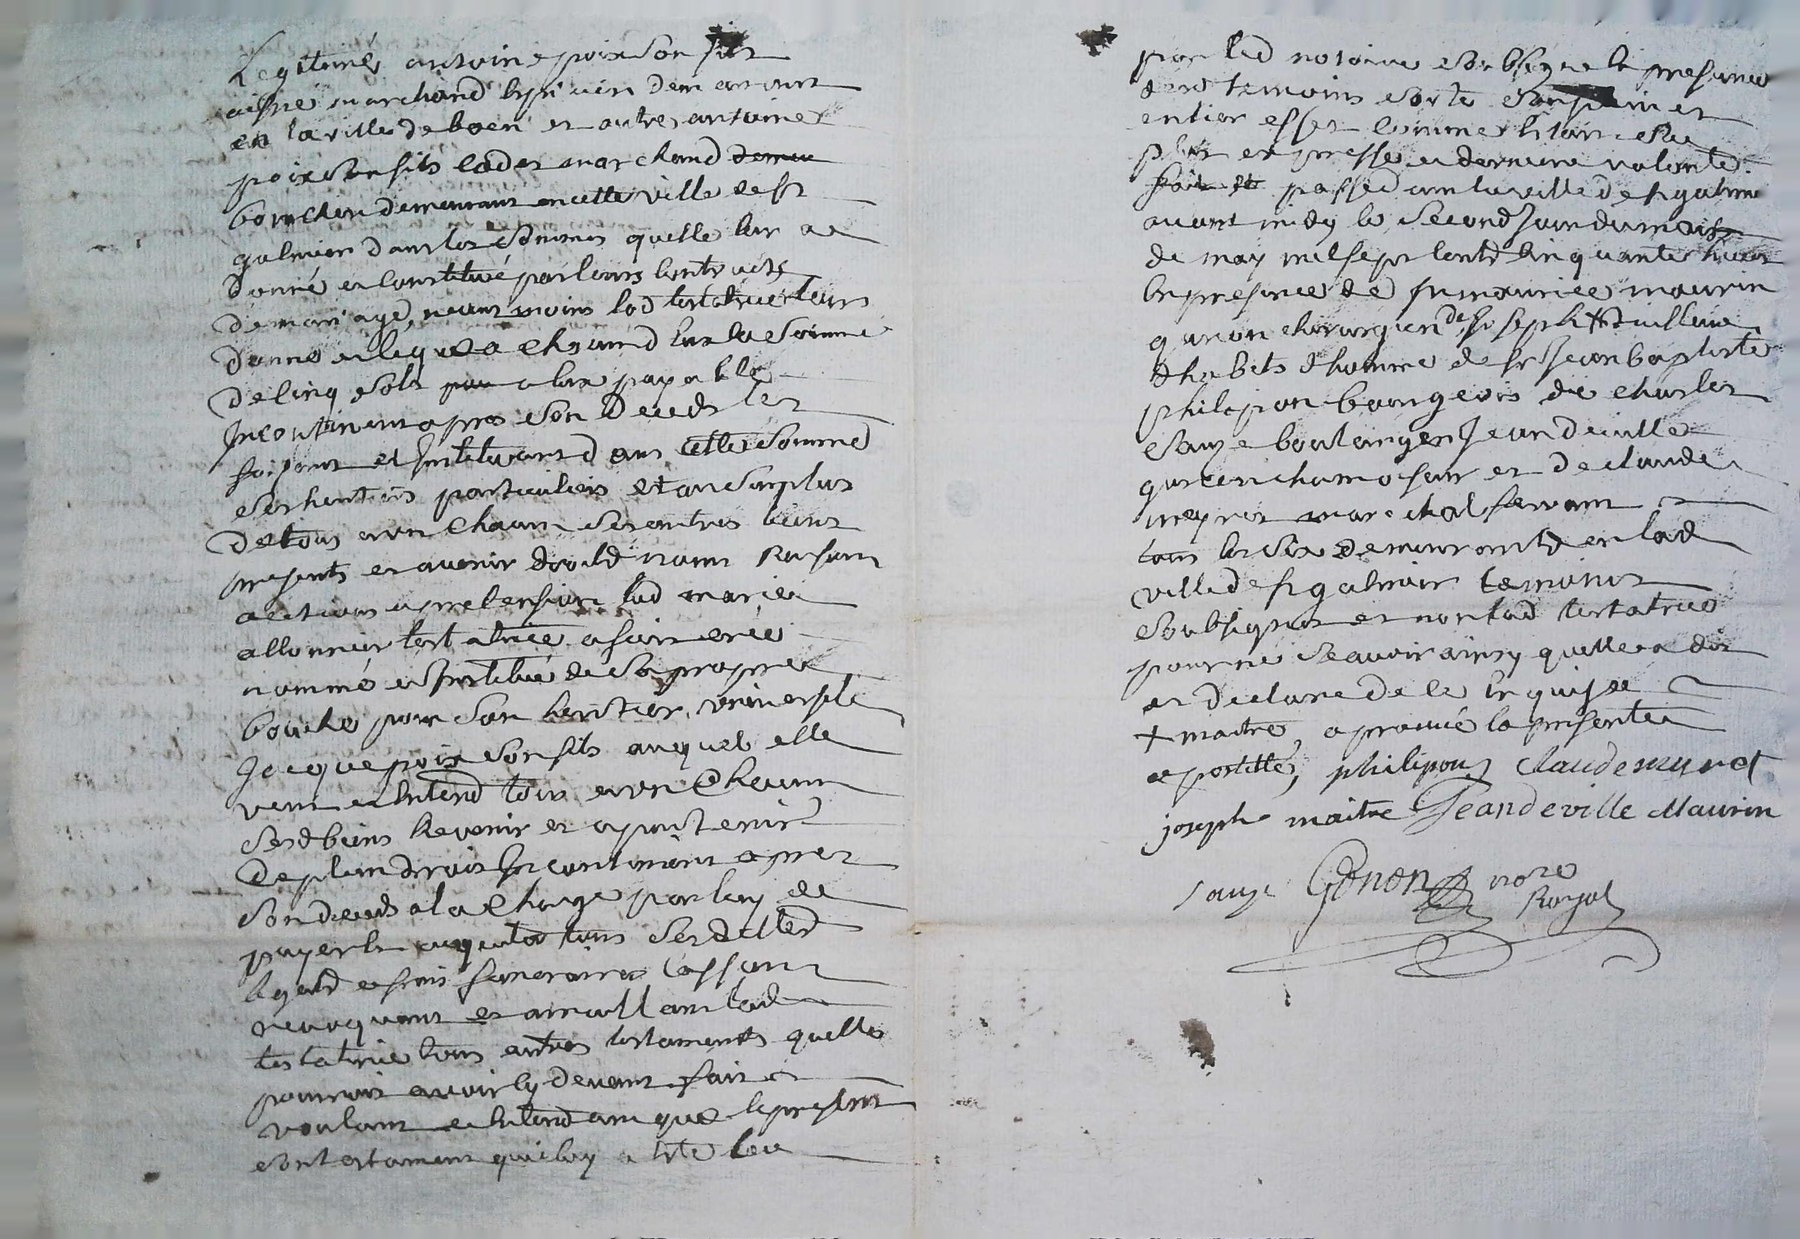 Legitimés antoine poix son fils
aisné marchand epicier demeurant
en la ville de boen et autre antoine
poix son fils cadet marchand demeu
boucher demeurant en cette ville de st
galmier dans les sommes quelle leur a
donné et constitué par leurs contracts
de mariage, neant moins lad testatrice leurs
donne et legue a chacund eux la somme
de cinq sols pau a eux payable
Incontinent apres son deceds les
faisant et Instituant dans cette somme
ses heritiers particuliers et au surplus
de tous un chacun ses autres biens
presents et avenir droits noms Raisons
actions et pretensions lad marie
allonnier testatrice a fait cree
nommé et Institué de sa propre
bouche pour son heritier universele
Jacque poix son fils auquel elle
veut et entend tous un chacun
sesd biens Revenir et apartenir
de plein droit Incontinent apres
son deceds a la charge par luy de
payer et acquiter tous sesd dettes
legatd et frais funeraires Cassant
revoquant et annullant lad
testatrice tous autres testaments quelle
pourroit avoir cy devant fait
voulant et entendant que le present
son testament qui luy a este leu
par led notaire soubsigne en presence
desd temoins sorte son plein et
entier effet comme etant sa
plus expresse et derniere volonté.
fait et passé dans la ville de st galmier
avant midy le second Jour du mois
de may mil sept cents cinquante huit
en presence de sr maurice maurin
garcon chirurgien de Joseph + tailleur
dhabits d'homme de sr Jean baptiste
philipon bourgeois de charles
sauze boulanger Jean deville
garcon chamoiseur et de claude
meynet marechal ferrant
tous les six demeurants en lad
ville de st galmier temoins
soubsignes et non lad testatrice
pour ne scavoir ainsy quelle a dit
et declaré de ce enquise
+ maitre, aprouvé la presente
apostille, philipon claude meynet
joseph maitre Jean deville Maurin
sauze Gonon nore
Royal